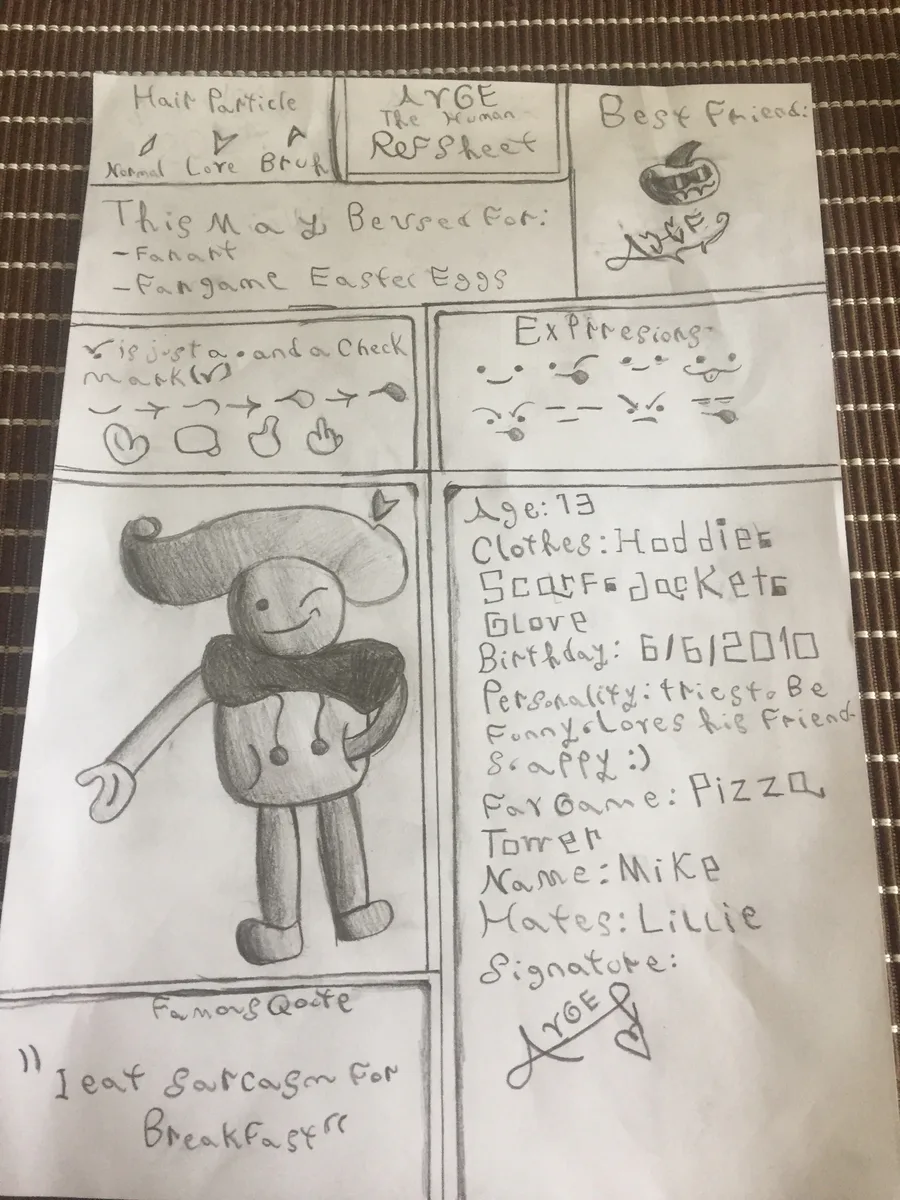 Hair Particle
Normal Love Bruh
ArGE
The Human
RefSheet
Best Friend:
This May Beused For:
-Fanart
-Fangame Easter Eggs
is just a . and a Check
mark(r)
Expiresions
Age:13
Clothes:Hoddies
Scarfs Jackets
Glove
Birthday: 6/6/2010
Personality: tries to Be
Funny. Loves his Friend
Scappy :)
Far Game: Pizza
Tower
Name: Mike
Hates: Lillie
Signature:
ArGE
Famous Qoute
"I eat sarcasm For
BreakFast"